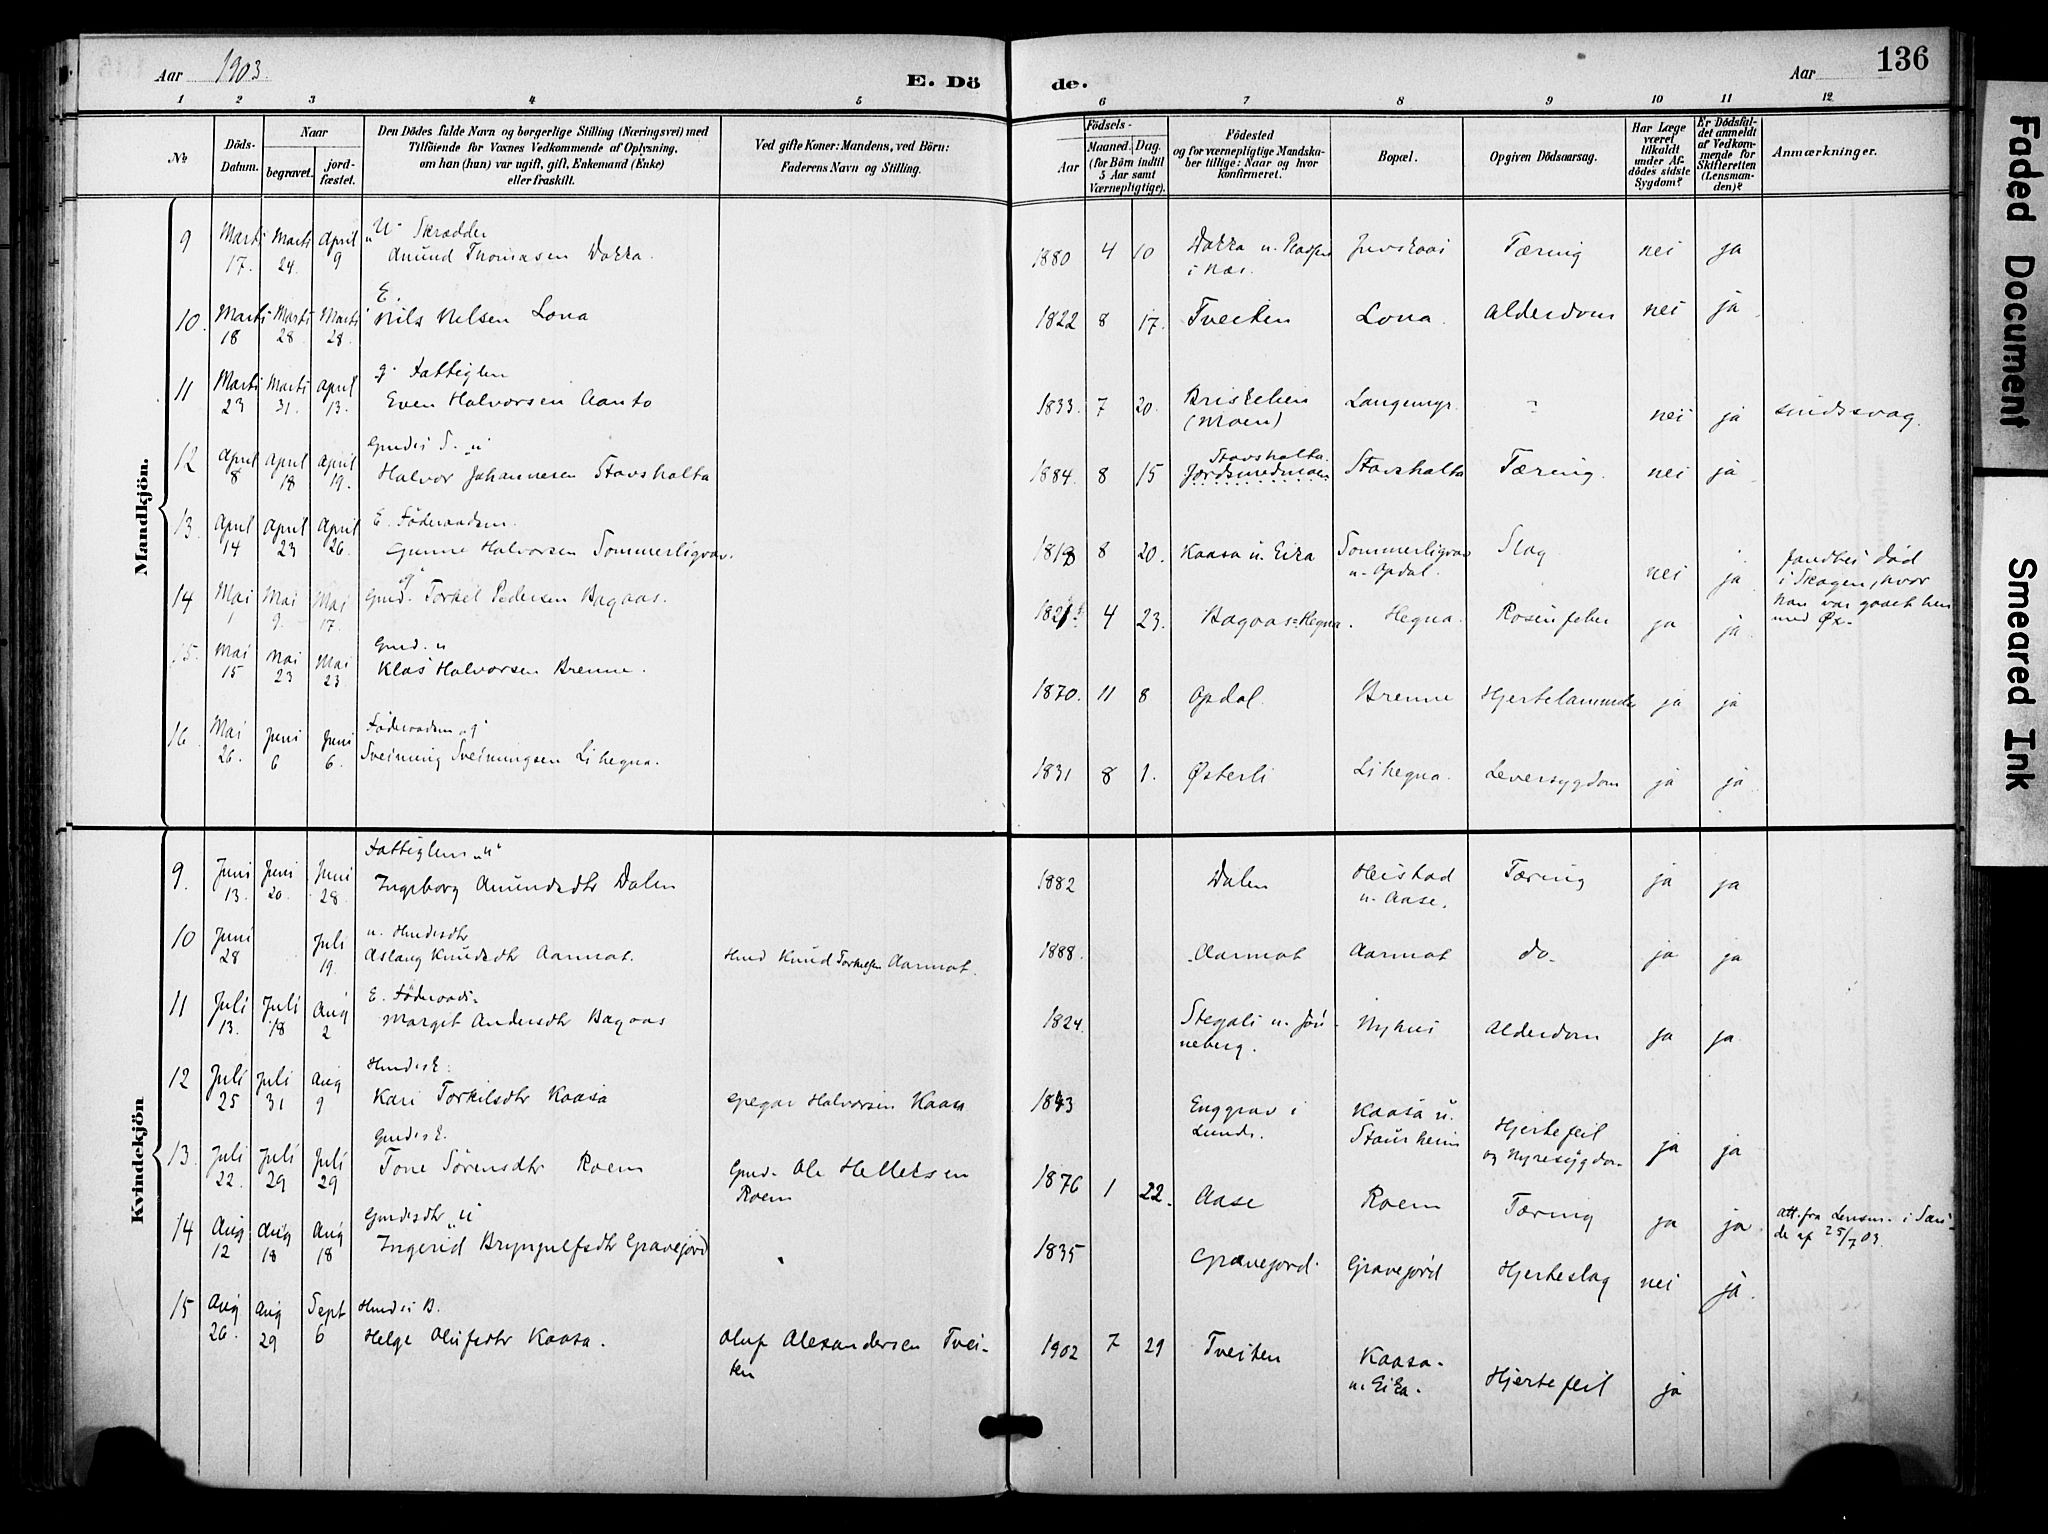 Aar 1903.
E. Dö
de.
Aar
136
1 2 3 4 5 6 7 8 9 10 11 12
No
Döds-
Datum.
Naar
begravet.
jord-
fæstet.
Den Dödes fulde Navn og borgerlige Stilling (Næringsvei) med
Tilföiende for Voxnes Vedkommende af Oplysning,
om han (hun) var ugift, gift, Enkemand (Enke)
eller fraskilt.
Ved gifte Koner: Mandens, ved Börn:
Faderens Navn og Stilling.
Födsels-
Aar
Maaned.
Dag.
(for Börn indtil
5 Aar samt
Værnepligtige).
Födested
og for værnepligtige Mandska-
ber tillige: Naar og hvor
konfirmeret.
Bopæl.
Opgiven Dödsaarsag.
Har Læge
været
tilkaldt
under Af-
dödes sidste
Sygdom?
Er Dödsfal-
det anmeldt
af Vedkom-
mende for
Skifteretten
(Lensman-
den)?
Anmærkninger.
Mandkjön.
9 Marti 17. Marti 24. April 9 "U" Skrædder
Anund Thomasen Dakka. 1880 4 10 Dakka u. i Næs. Tæring nei ja
10. Marti 18 Marti 28. Marti 28. E.
Nils Nilsen Lona 1822 8 17. Tveiten Lona. Alderdom nei ja
11 Marti 23 Marti 31. April 13. g. Fattiglem
Even Halvorsen Aanto 1833. 7 20. Briskelien
(Moen) Langemyr. " nei ja sindssvag.
12 April 8 April 18 April 19. Gmds S. "u"
Halvor Johannesen Stavsholta 1884. 8 15 Stavsholta.
Jordsmedmoen Stavsholta Tæring. nei ja
13. April 14 April 23 April 26. E. Föderaadsm.
Gunne Halvorsen Sommerligrav. 1818 8 20. Kaasa u. Eika Sommerligrav
u. Opdal. Slag nei ja fandtes død
i Skogen, hvor
han var gaaet hen
med Øx-
14 Mai 1 Mai 9. Mai 17. "g"
Gmd. Torkel Pedersen Bagaas. 4 23. Bagaas-Hegna. Hegna. Rosenfeber ja ja.
15. Mai 15 Mai 23 Mai 23. Gmd. u
Klas Halvorsen Brenne. 1870. 11 8 Opdal. Brenne Hjertelammelse ja ja
16. Mai 26. Juni 6 Juni 6. Föderaadsm "g"
Sveinung Sveinungsen Lihegna. 1831 8 1. Østerli Lihegna. Leversygdom ja ja.
Kvindekjön
9. Juni 13. Juni 20. Juni 28. Fattiglem "u"
Ingeborg Anundsdtr Dalen 1882 Dalen Heistad
u. Aase. Tæring ja ja
10 Juni 28 Juli 19. u. Hmdsdtr
Aslaug Knudsdtr Aamot. Hmd Knud Torkelsen Aamot. 1888. Aamot Aamot do- ja ja
11 Juli 13. Juli 18 Aug 2 E. Föderaads-
Margit Andersdtr Bagaas 1824. Stegali u. Jön-
neberg. Nyhus Alderdom ja ja.
12 Juli 25 Juli 31 Aug 9 Hmds E.
Kari Torkilsdtr Kaasa Gregar Halvorsen Kaasa 1843 Enggrav i
Lunde. Kaasa u.
Staurheim Hjertefeil
og Nyresygdom ja ja
13. Juli 22. Juli 29 Juli 29 Gmds E.
Tone Sörensdtr Roem Gmd. Ole Helleksen
Roem 1876 1 22. Aase Roem Tæring ja ja. att. fra Lensm. i Sau-
de af 25/7 03.
14 Aug 12 Aug 18 Aug 18 Gmdsdtr "u"
Ingerid Brynjulfsdtr Gravejord 1835 Gravejord. Gravejord Hjerteslag nei ja.
15 Aug 26. Aug 29 Sept 6 Hmds B.
Helge Olufsdtr Kaasa. Oluf Alexandersen Tvei-
ten 1902 7 29 Tveiten Kaasa-
u. Eika. Hjertefeil ja
Faded Document
Smeared Ink